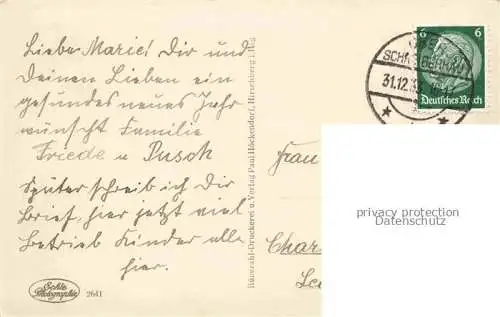 Liebe Marie! Dir und
Deinen Lieben ein
gesundes neues Jahr
wünscht Familie
Friede u Pusch
Später schreib ich Dir
Brief, hier jetzt viel
Betrieb Kinder alle
hier.
Echte
Photographie
2611
Rübezahl-Druckerei u. Verlag Paul Höckendorf, Hirschberg i. Rsg
6 6
Deutsches Reich
31.12.3
Frau
privacy protection
Datenschutz
Char